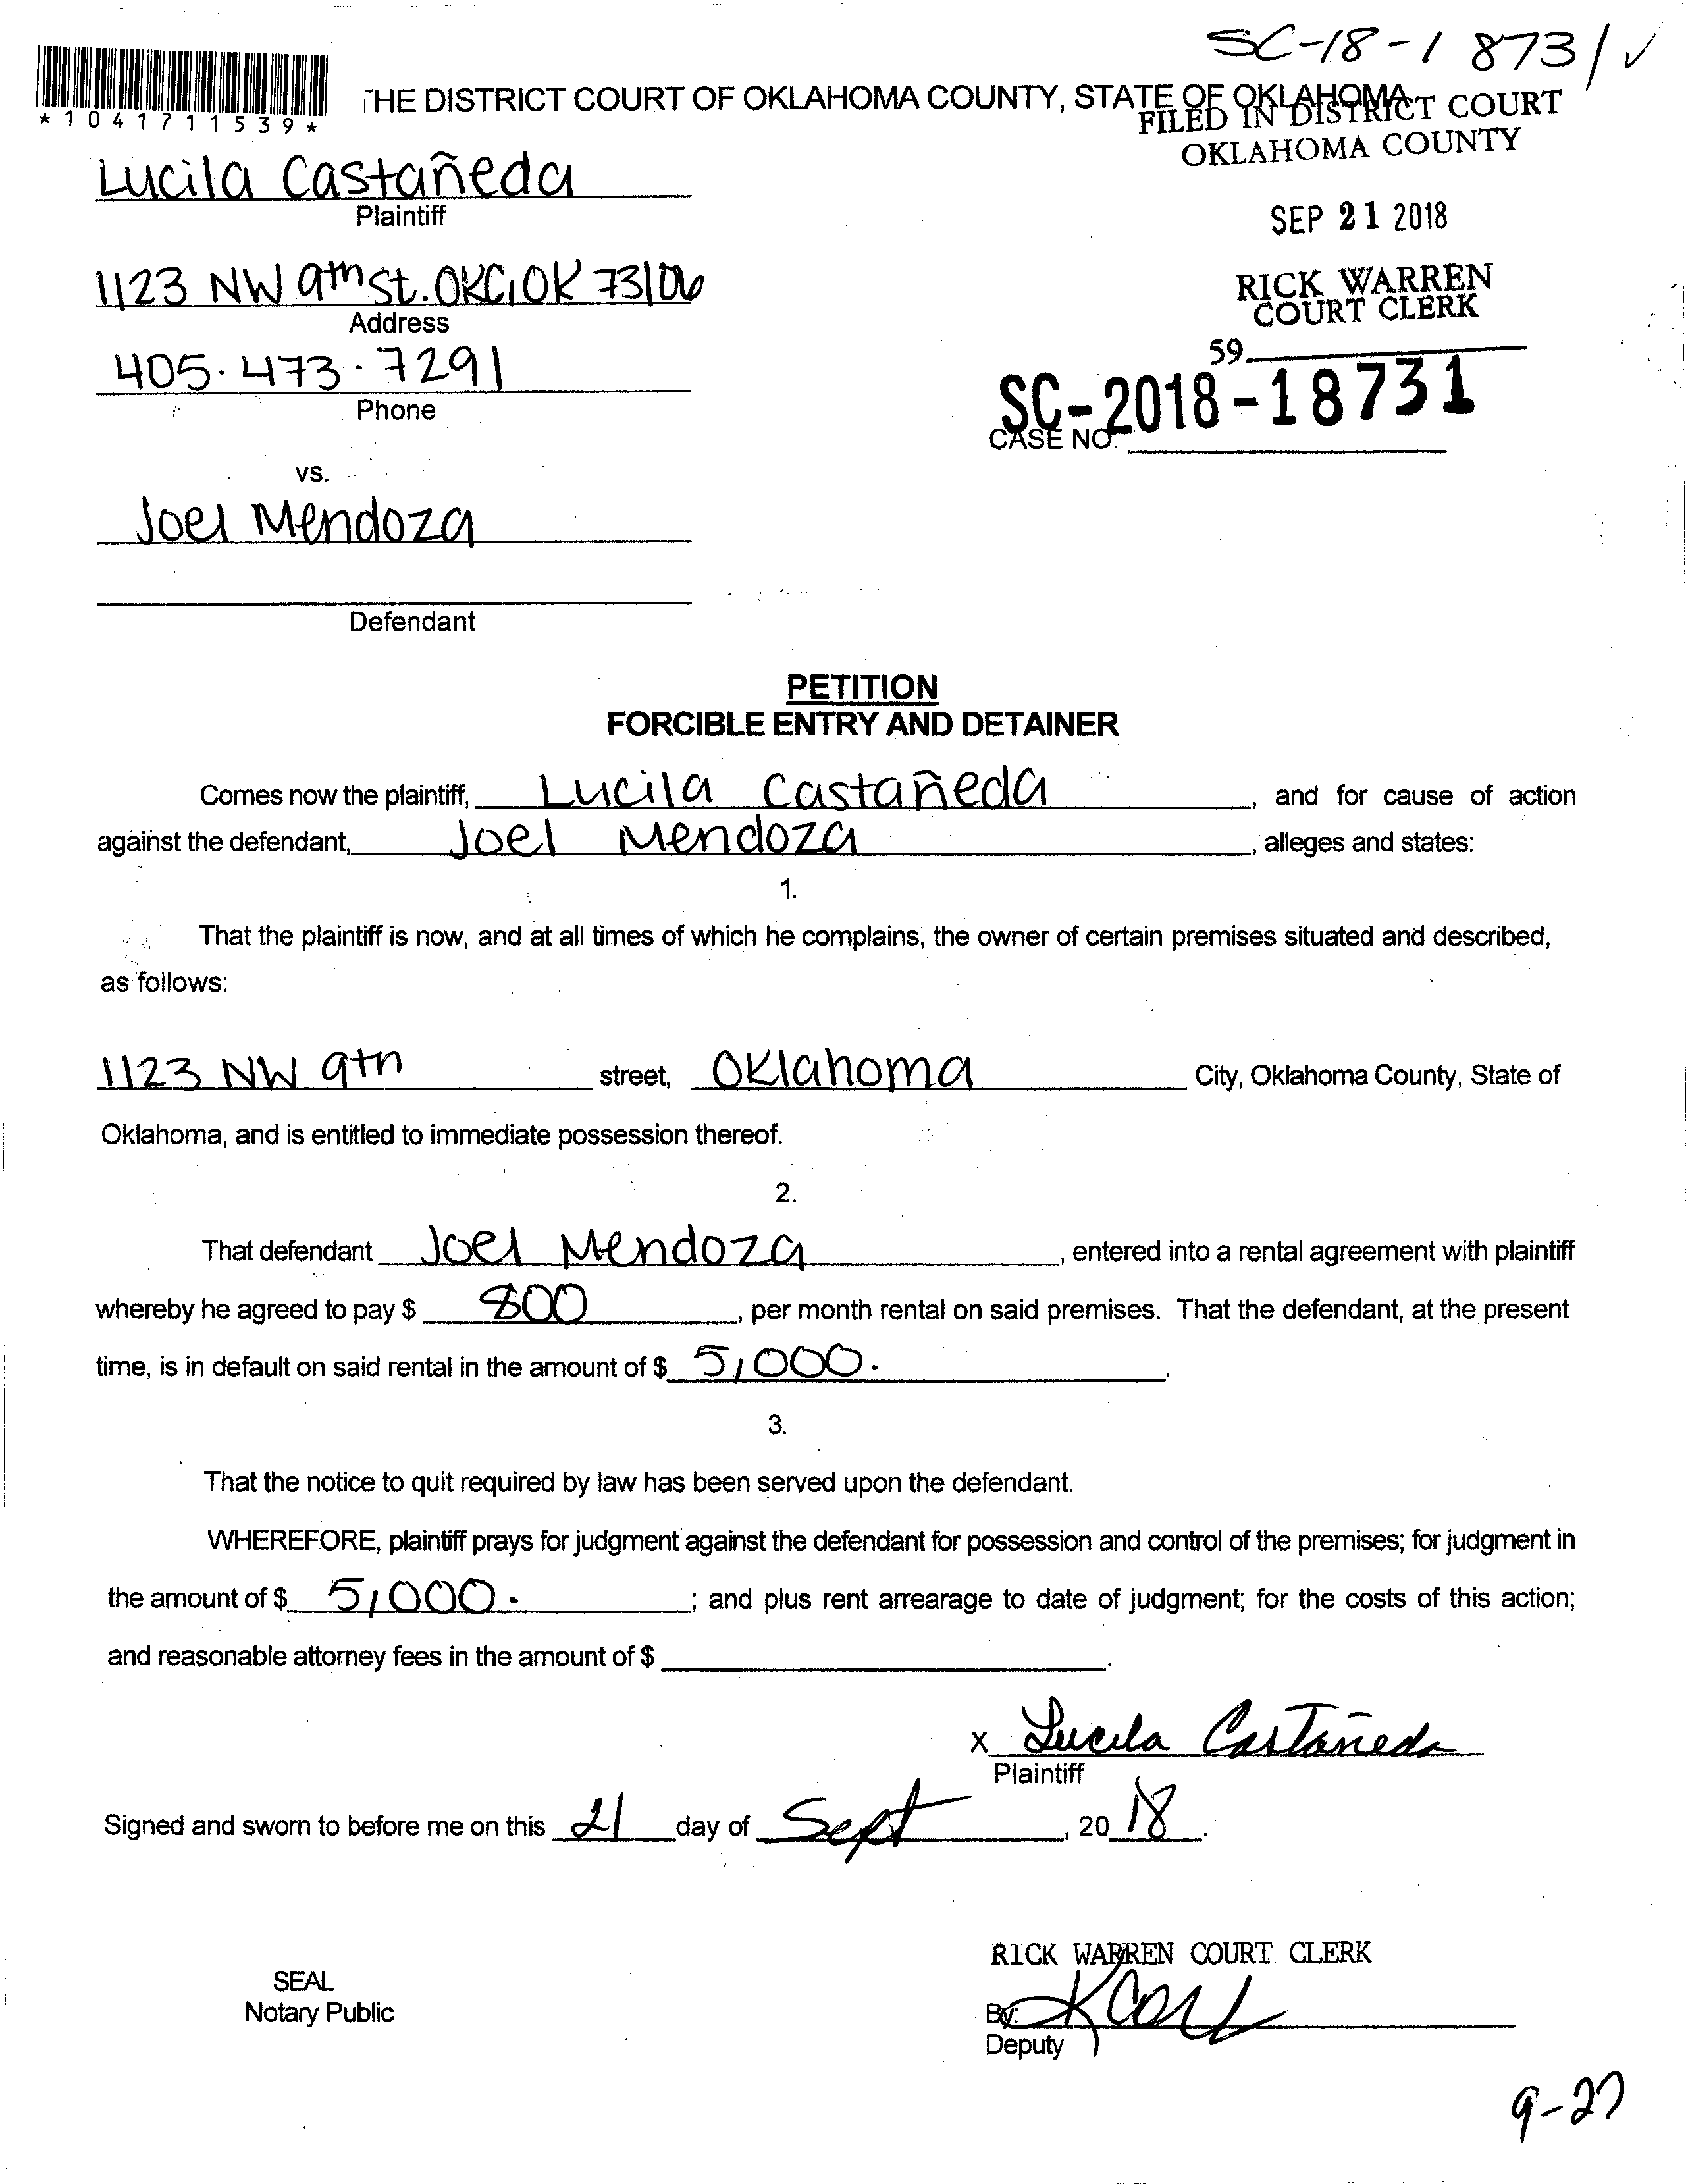 SC-18-1 8731 ✓
*1041711539*
THE DISTRICT COURT OF OKLAHOMA COUNTY, STATE OF OKLAHOMA
FILED IN DISTRICT COURT
OKLAHOMA COUNTY
Lucila Castañeda
Plaintiff
SEP 21 2018
1123 NW 9th St. OKC, OK 73106
Address
RICK WARREN
COURT CLERK
405.473.7291
Phone
59
SC-2018-18731
CASE NO.
vs.
Joel Mendoza
Defendant
PETITION
FORCIBLE ENTRY AND DETAINER
Comes now the plaintiff, Lucila Castañeda, and for cause of action
against the defendant, Joel Mendoza, alleges and states:
1.
That the plaintiff is now, and at all times of which he complains, the owner of certain premises situated and described,
as follows:
1123 NW 9th street, Oklahoma City, Oklahoma County, State of
Oklahoma, and is entitled to immediate possession thereof.
2.
That defendant Joel Mendoza, entered into a rental agreement with plaintiff
whereby he agreed to pay $ 800, per month rental on said premises. That the defendant, at the present
time, is in default on said rental in the amount of $ 5,000. .
3.
That the notice to quit required by law has been served upon the defendant.
WHEREFORE, plaintiff prays for judgment against the defendant for possession and control of the premises; for judgment in
the amount of $ 5,000. ; and plus rent arrearage to date of judgment; for the costs of this action;
and reasonable attorney fees in the amount of $ .
x Lucila Castañeda
Plaintiff
Signed and sworn to before me on this 21 day of Sept, 20 18.
RICK WARREN COURT CLERK
SEAL
Notary Public
By:
Deputy
9-27